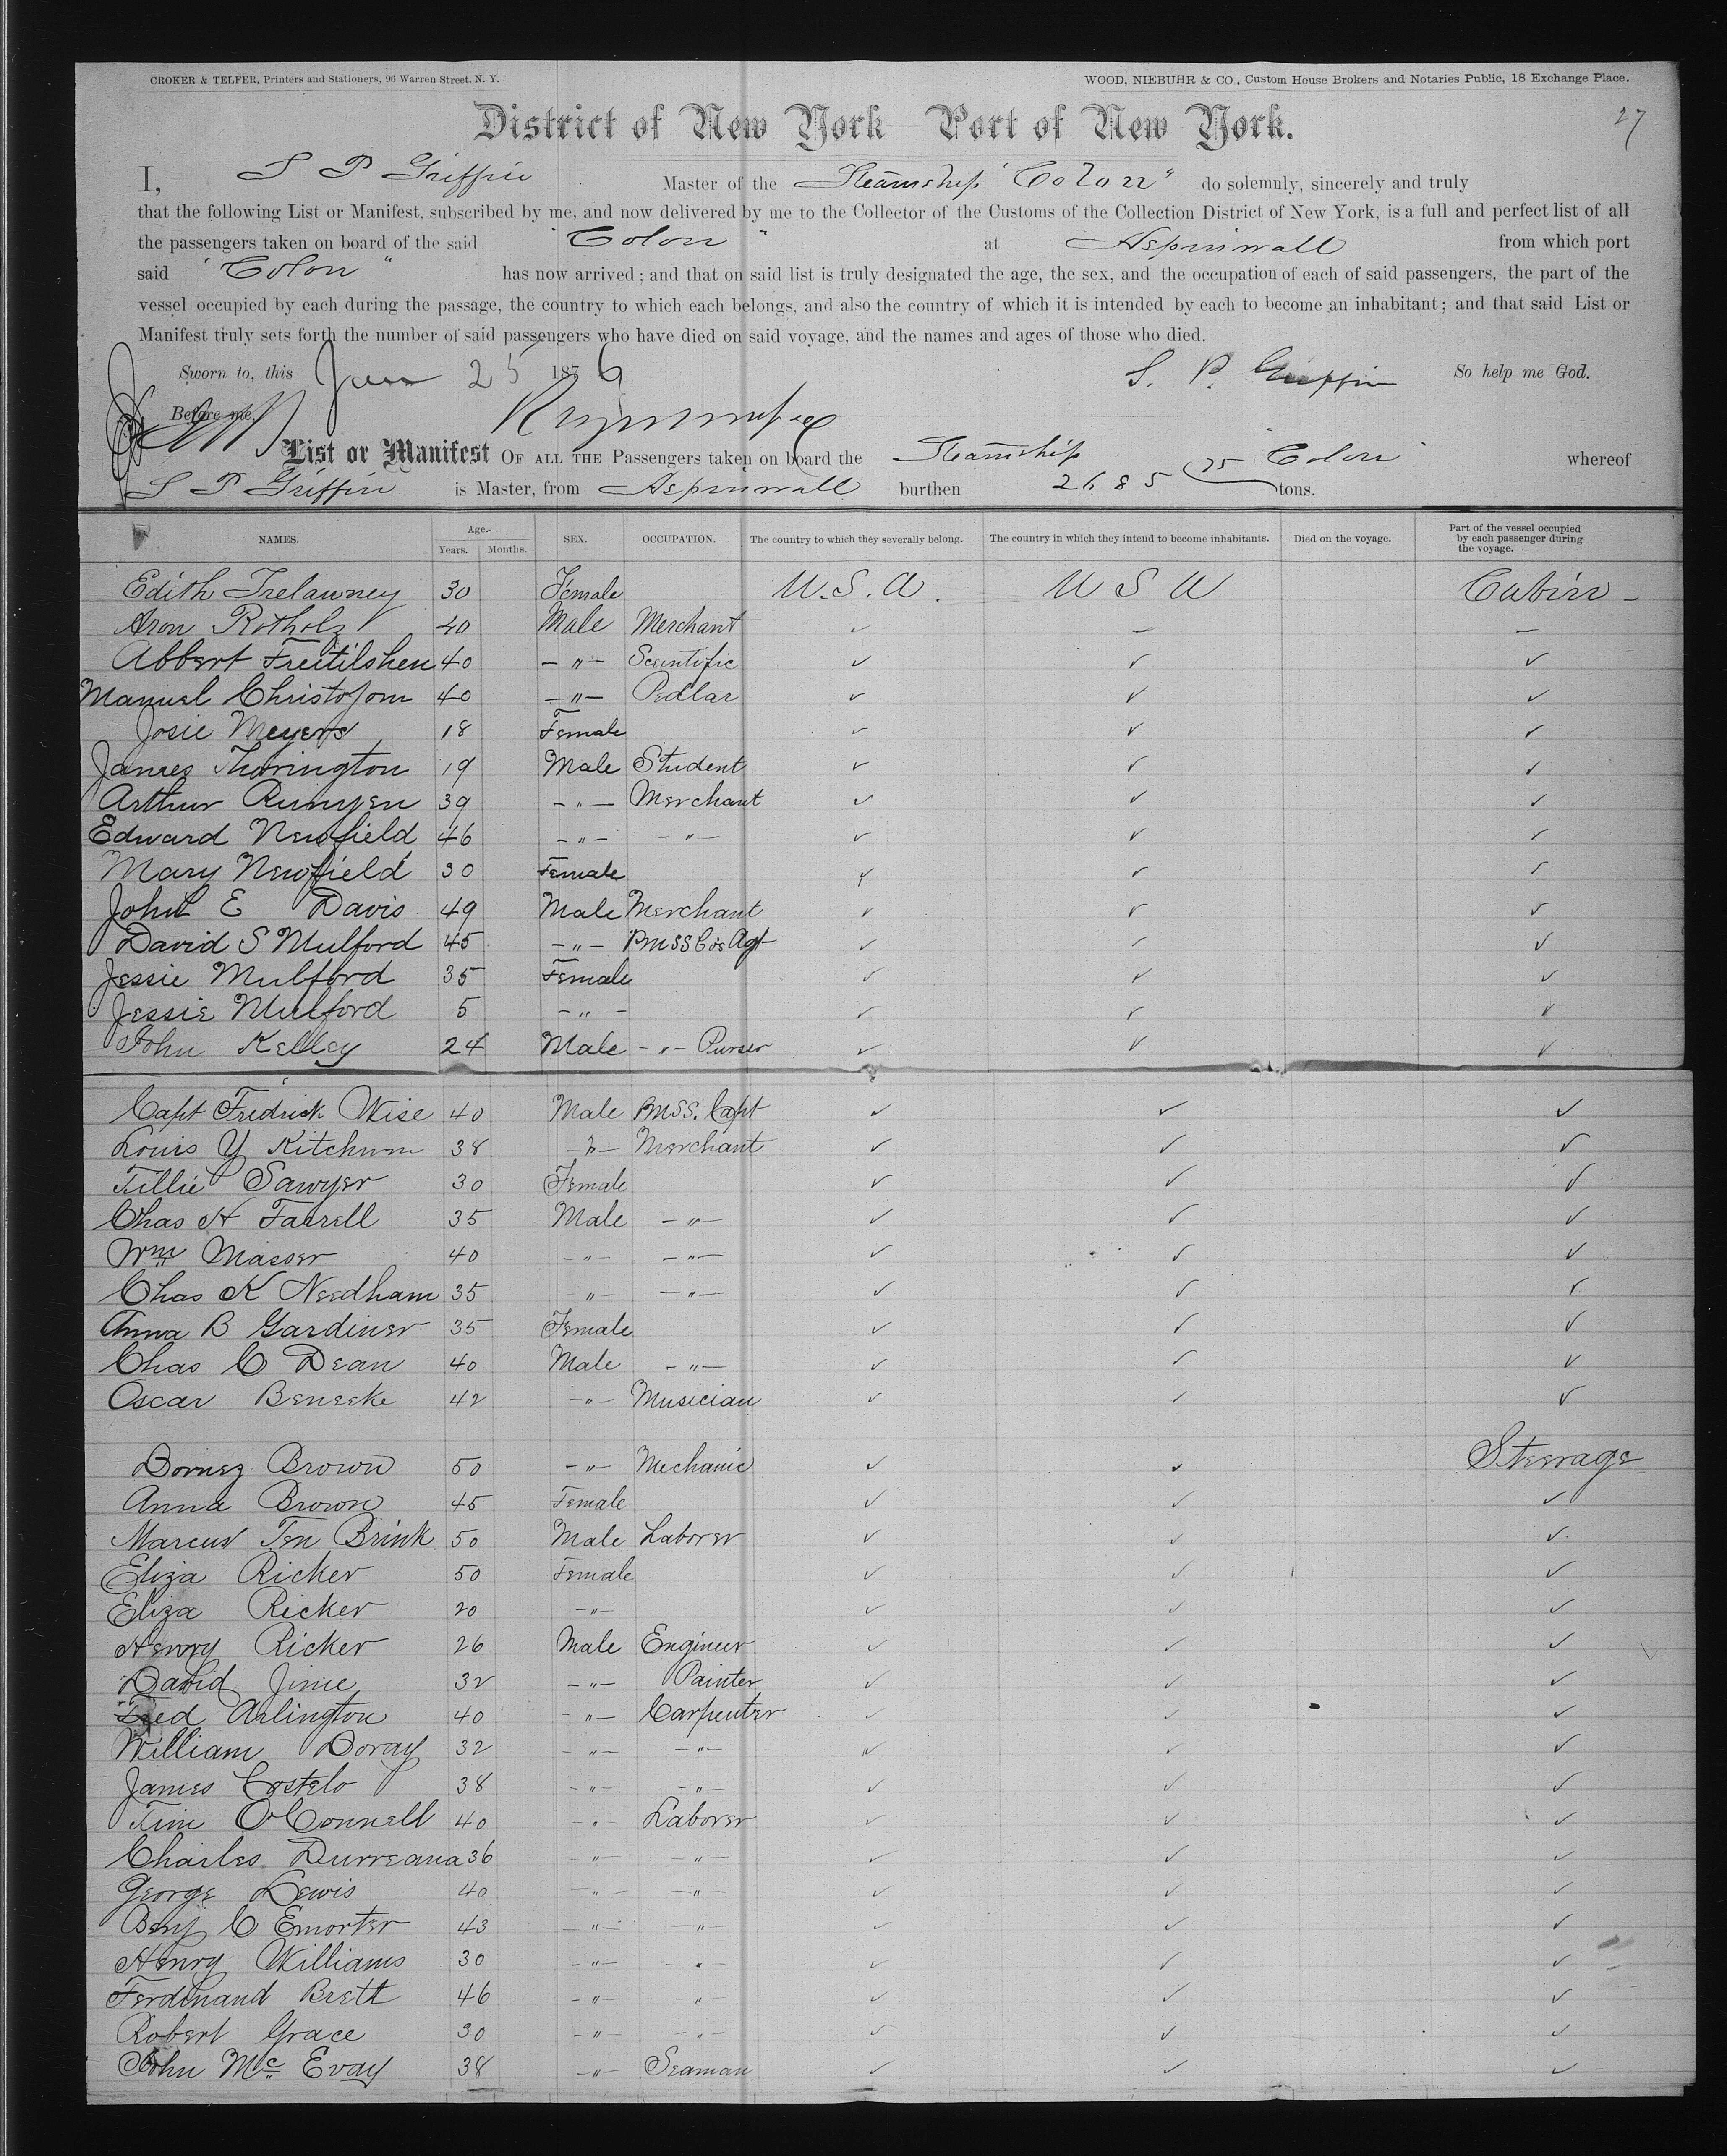 CROKER & TELFER, Printers and Stationers, 96 Warren Street, N. Y. WOOD, NIEBUHR & CO., Custom House Brokers and Notaries Public, 18 Exchange Place.
District of New York—Port of New York.
27
I, S P Griffin Master of the Steamship "Colon" do solemnly, sincerely and truly
that the following List or Manifest, subscribed by me, and now delivered by me to the Collector of the Customs of the Collection District of New York, is a full and perfect list of all
the passengers taken on board of the said "Colon" at Aspinwall from which port
said "Colon" has now arrived; and that on said list is truly designated the age, the sex, and the occupation of each of said passengers, the part of the
vessel occupied by each during the passage, the country to which each belongs, and also the country of which it is intended by each to become an inhabitant; and that said List or
Manifest truly sets forth the number of said passengers who have died on said voyage, and the names and ages of those who died.
Sworn to, this Jan 25 1876 S. P. Griffin So help me God.
Before me,
List or Manifest OF ALL THE Passengers taken on board the Steamship Colon whereof
S P Griffin is Master, from Aspinwall burthen 2685 tons.
NAMES. Age. Years. Months. SEX. OCCUPATION. The country to which they severally belong. The country in which they intend to become inhabitants. Died on the voyage. Part of the vessel occupied by each passenger during the voyage.
Edith Trelawney 30 Female U.S.A. U S A Cabin -
Aron Rotholz 40 Male Merchant ✓ — —
Abbert Freitilshen 40 -"- Scentific ✓ ✓ ✓
Manuel Christofom 40 -"- Pedlar ✓ ✓ ✓
Josie Meyers 18 Female ✓ ✓ ✓
James Thorington 19 Male Student ✓ ✓ ✓
Arthur Runyen 39 -"- Merchant ✓ ✓ ✓
Edward Newfield 46 -"- -"- ✓ ✓ ✓
Mary Newfield 30 Female ✓ ✓ ✓
John E Davis 49 Male Merchant ✓ ✓ ✓
David S Mulford 45 -"- PMSS Co's Agt ✓ ✓ ✓
Jessie Mulford 35 Female ✓ ✓ ✓
Jessie Mulford 5 -"- ✓ ✓ ✓
John Kelley 24 Male -"- Purser ✓ ✓ ✓
Capt Fredrick Wise 40 Male PMSS. Capt ✓ ✓ ✓
Louis Y Kitchum 38 -"- Merchant ✓ ✓ ✓
Tillie Sawyer 30 Female ✓ ✓ ✓
Chas H Farrell 35 Male -"- ✓ ✓ ✓
Wm Masser 40 -"- -"- ✓ ✓ ✓
Chas K Needham 35 -"- -"- ✓ ✓ ✓
Anna B Gardiner 35 Female ✓ ✓ ✓
Chas C Dean 40 Male -"- ✓ ✓ ✓
Oscar Beneeke 42 -"- Musician ✓ ✓ ✓
Bornez Brown 50 -"- Mechanic ✓ ✓ Steerage
Anna Brown 45 Female ✓ ✓ ✓
Marcus Ten Brink 50 Male Laborer ✓ ✓ ✓
Eliza Ricker 50 Female ✓ ✓ ✓
Eliza Ricker 20 -"- ✓ ✓ ✓
Henry Ricker 26 Male Engineer ✓ ✓ ✓
David Jinie 32 -"- Painter ✓ ✓ ✓
Fred Arlington 40 -"- Carpenter ✓ ✓ ✓
William Doray 32 -"- -"- ✓ ✓ ✓
James Costelo 38 -"- -"- ✓ ✓ ✓
Tim O'Connell 40 -"- Laborer ✓ ✓ ✓
Charles Durreana 36 -"- -"- ✓ ✓ ✓
George Lewis 40 -"- -"- ✓ ✓ ✓
Benj C Emorter 43 -"- -"- ✓ ✓ ✓
Henry Williams 30 -"- -"- ✓ ✓ ✓
Ferdinand Brett 46 -"- -"- ✓ ✓ ✓
Robert Grace 30 -"- -"- ✓ ✓ ✓
John Mc Evay 38 -"- Seaman ✓ ✓ ✓